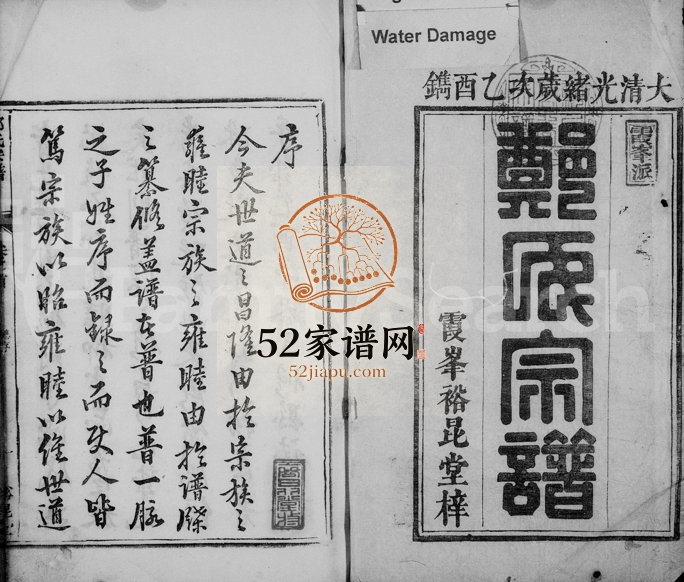 Water Damage
大清光緒歲次乙酉鐫
霞峯派
鄭氏宗譜
霞峯裕昆堂梓
序
今夫世道之昌隆由於宗族之
雍睦宗族之雍睦由於譜牒
之纂修盖譜者普也普一脉
之子姓序而録之而使人皆
篤宗族以昭雍睦以維世道
52家谱网
52jiapu.com